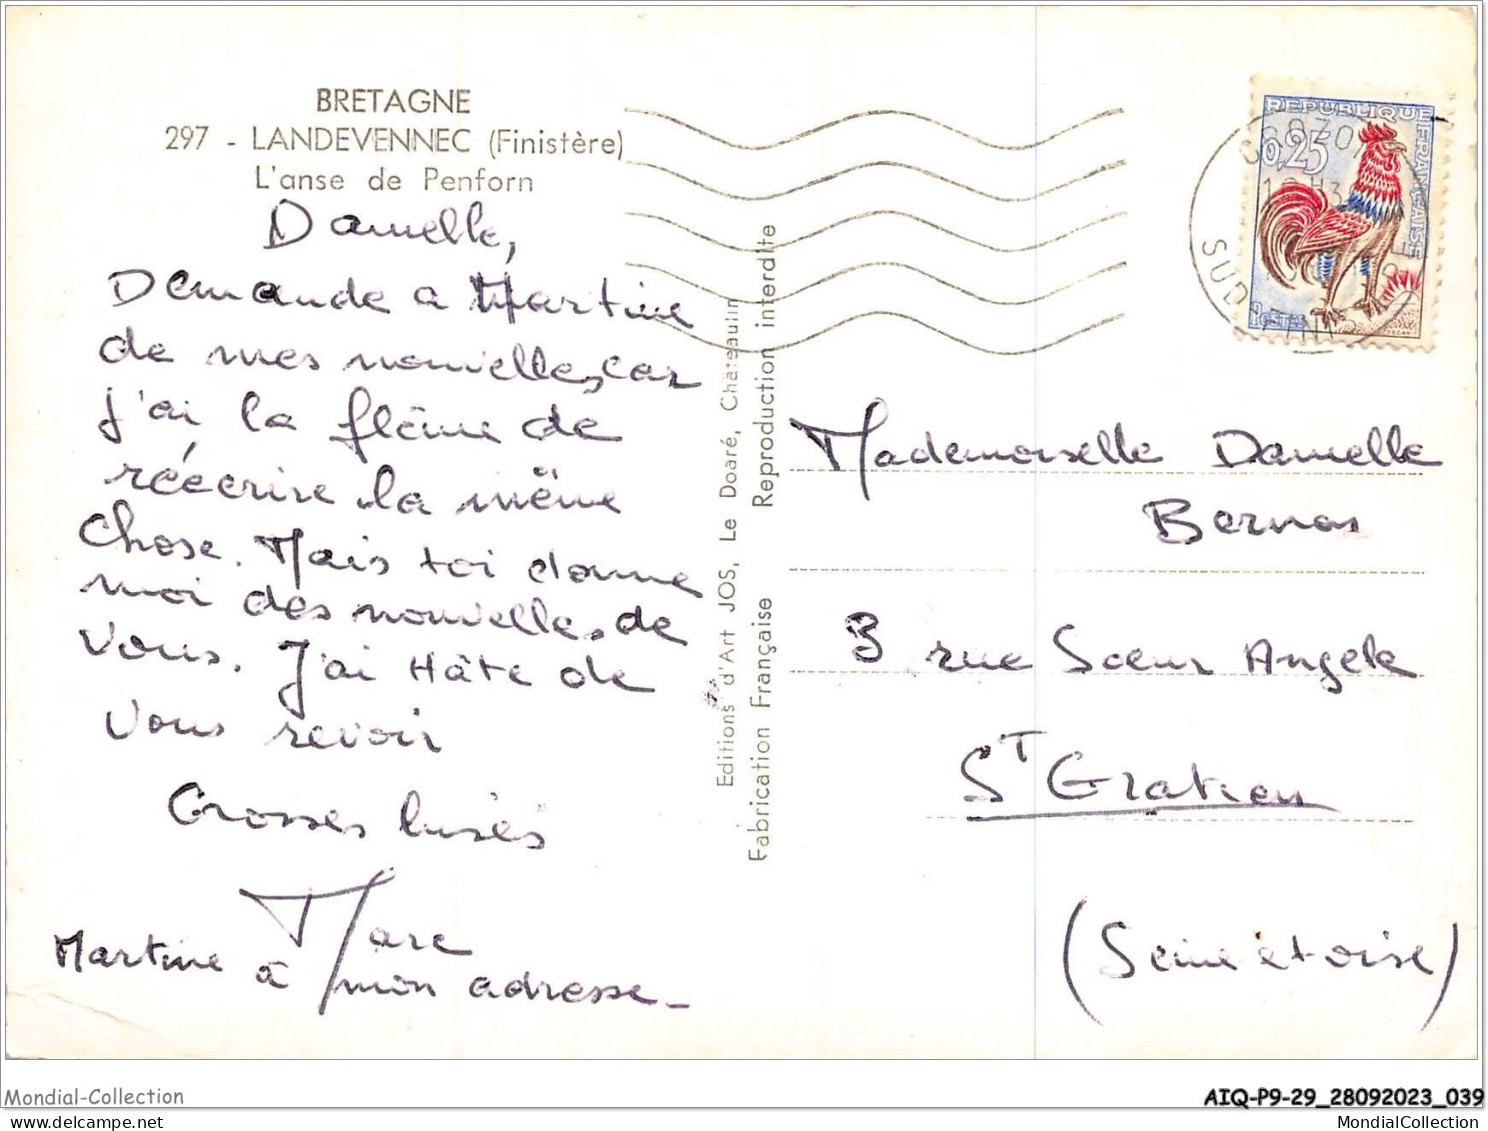 BRETAGNE
297 - LANDEVENNEC (Finistère)
L'anse de Penforn
Danielle,
Demande a Martine
de mes nouvelles, car
j'ai la flême de
réécrire la même
chose. Mais toi donne
moi des nouvelles de
vous. J'ai Hâte de
vous revoir
Grosses bises
Marc
Martine a mon adresse_
Editions d'Art JOS, Le Doaré, Châteaulin
Fabrication Française Reproduction interdite
REPUBLIQUE FRANÇAISE
0,25
POSTES
CROZON
SUD FINISTERE
Mademoiselle Danielle
Bernas
3 rue Soeur Angele
ST Gratien
(Seine et oise)
Mondial-Collection
AIQ-P9-29_28092023_039
MondialCollection